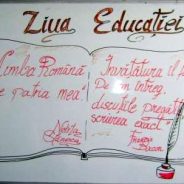 Ziua Educației
Limba Română
e patria mea!
Nichita
Stănescu
Învățătura îl f
De om întreg,
discuțiile pregăt
scrierea exact
Francis
Bacon